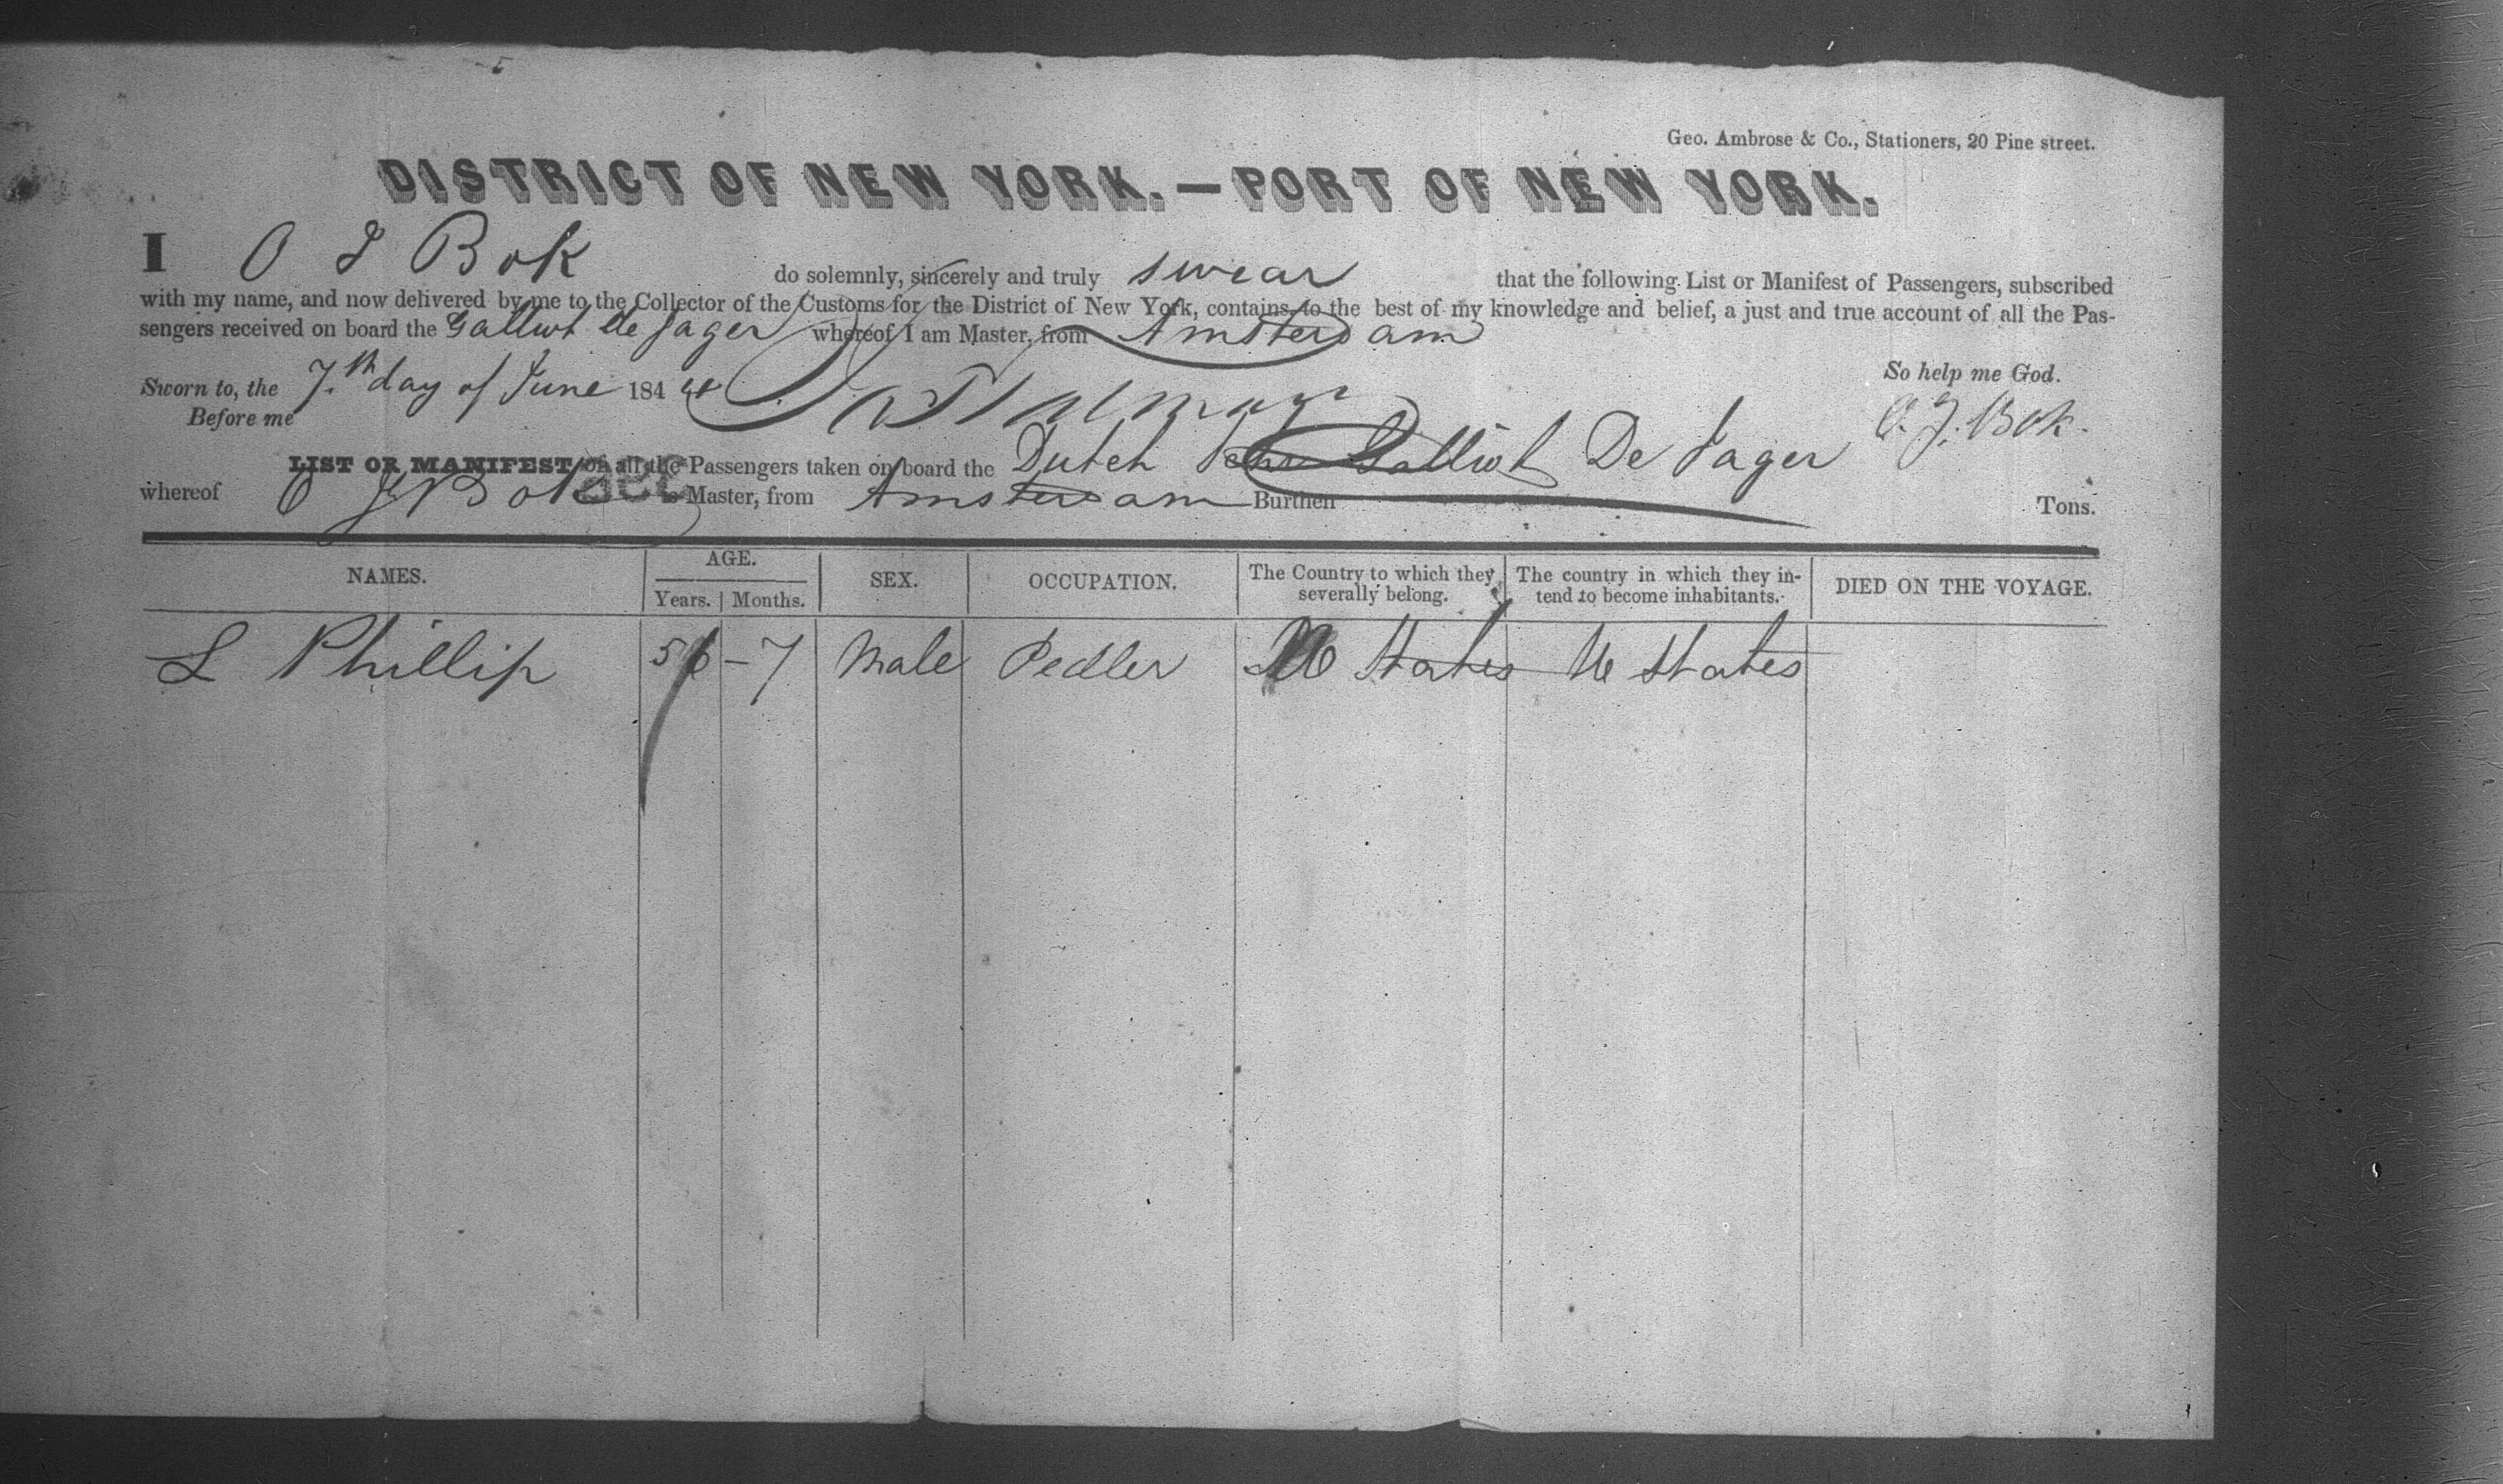 Geo. Ambrose & Co., Stationers, 20 Pine street.
DISTRICT OF NEW YORK.—PORT OF NEW YORK.
I O J Bok do solemnly, sincerely and truly swear that the following List or Manifest of Passengers, subscribed
with my name, and now delivered by me to the Collector of the Customs for the District of New York, contains to the best of my knowledge and belief, a just and true account of all the Pas-
sengers received on board the Galliot de Jager whereof I am Master, from Amsterdam
So help me God.
Sworn to, the 7.th day of June 184
Before me
O. J. Bok.
LIST OR MANIFEST of all the Passengers taken on board the Dutch Galliot De Jager
whereof O J Bok is Master, from Amsterdam Burthen Tons.
NAMES. AGE. SEX. OCCUPATION. The Country to which they severally belong. The country in which they in-tend to become inhabitants. DIED ON THE VOYAGE.
Years. Months.
L Phillip 56 - 7 Male Pedler U States U States